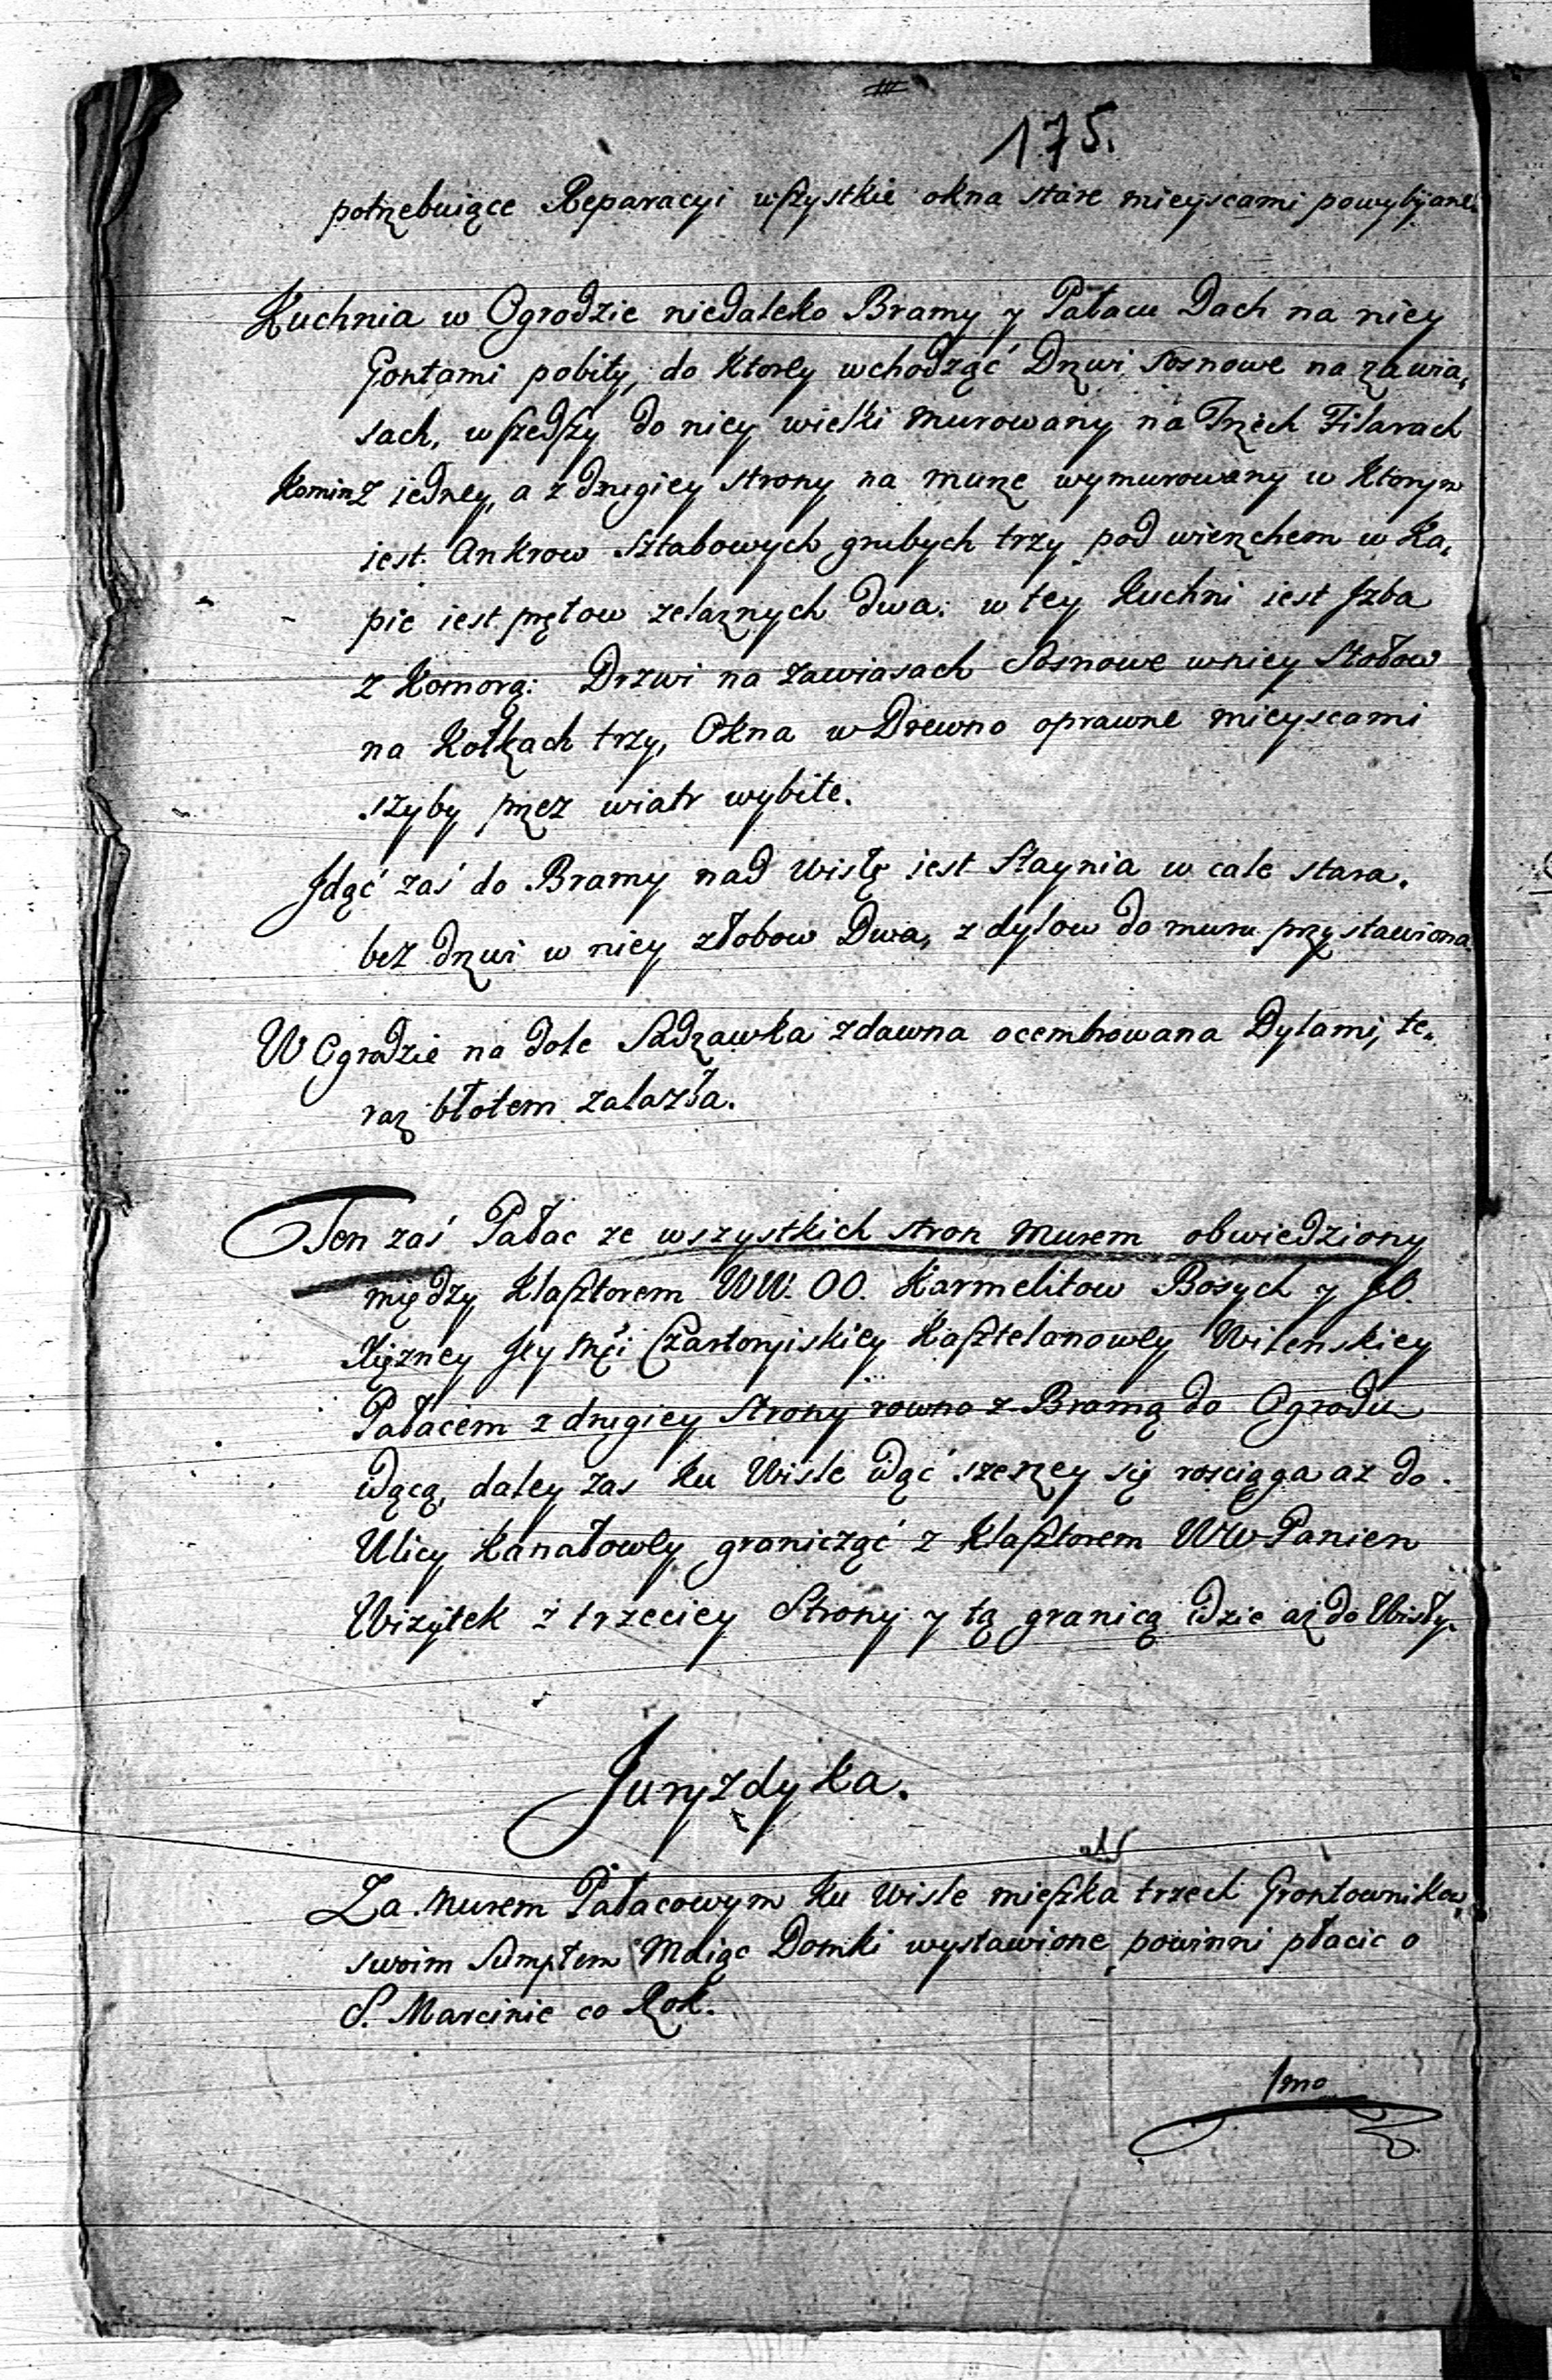 175.
potrzebuiące Reparacyi wszystkie okna stare mieyscami powybijane.
Kuchnia w Ogrodzie niedaleko Bramy y Pałacu Dach na niey
Gontami pobity, do ktorey wchodząć Drzwi sosnowe na zawia,
sach, wszedszy do niey wielki murowany na Trzech Filarach
Komin z iedney, a z drugiey strony na murze wymurowany w ktorym
iest Ankrow sztabowych grubych trzy pod wierzchem w Ka,
pie iest prętow zelaznych dwa: w tey Kuchni iest Izba
z Komorą: Drzwi na zawiasach Sosnowe w niey Stołow
na Kołkach trzy, Okna w Drewno oprawne mieyscami
szyby przez wiatr wybite.
Idąć zaś do Bramy nad Wisłę iest Staynia w cale stara.
bez drzwi w niey złobow Dwa, z dylow do muru przystawiona.
W Ogrodzie na dole Sadzawka zdawna ocembrowana Dylami, te,
raz błotem zalazła.
Ten zaś Pałac ze wszystkich stron murem obwiedziony
między Klasztorem WW. OO. Karmelitow Bosych y JO.
Xięzney Jey Mći Czartoryiskiey Kasztelanowey Wilenskiey
Pałacem z drugiey strony rowno z Bramą do Ogrodu
idącą, daley zas ku Wisle idąć szerzey się rosciąga az do
Ulicy Kanałowey granicząć z Klasztorem WW Panien
Wizytek z trzeciey Strony y tą granicą idzie aż do Wisły.
Juryzdyka.
Za Murem Pałacowym ku Wisle mieszka trzech Grontownikow,
swoim Sumptem Maiąc Domki wystawione powinni płacic o
S. Marcinie co Rok.
1mo